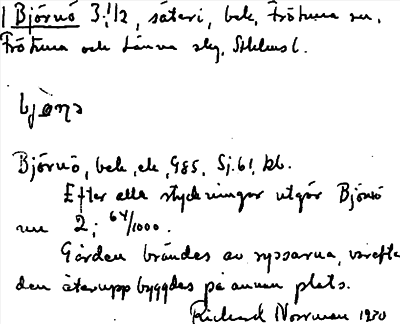 Björnö 3 1/2, säteri, bek, Frötuna sn,
Frötuna och Länna skg, Sthlms l.
bjø̀ṇɜ
Björnö, bek, ek, G85, Sj.61, kb.
Efter alla styckningar utgör Björnö
nu 2; 64/1000.
Gården brändes av ryssarna, varefter
den återuppbyggdes på annan plats.
Rickard Norrman 1930